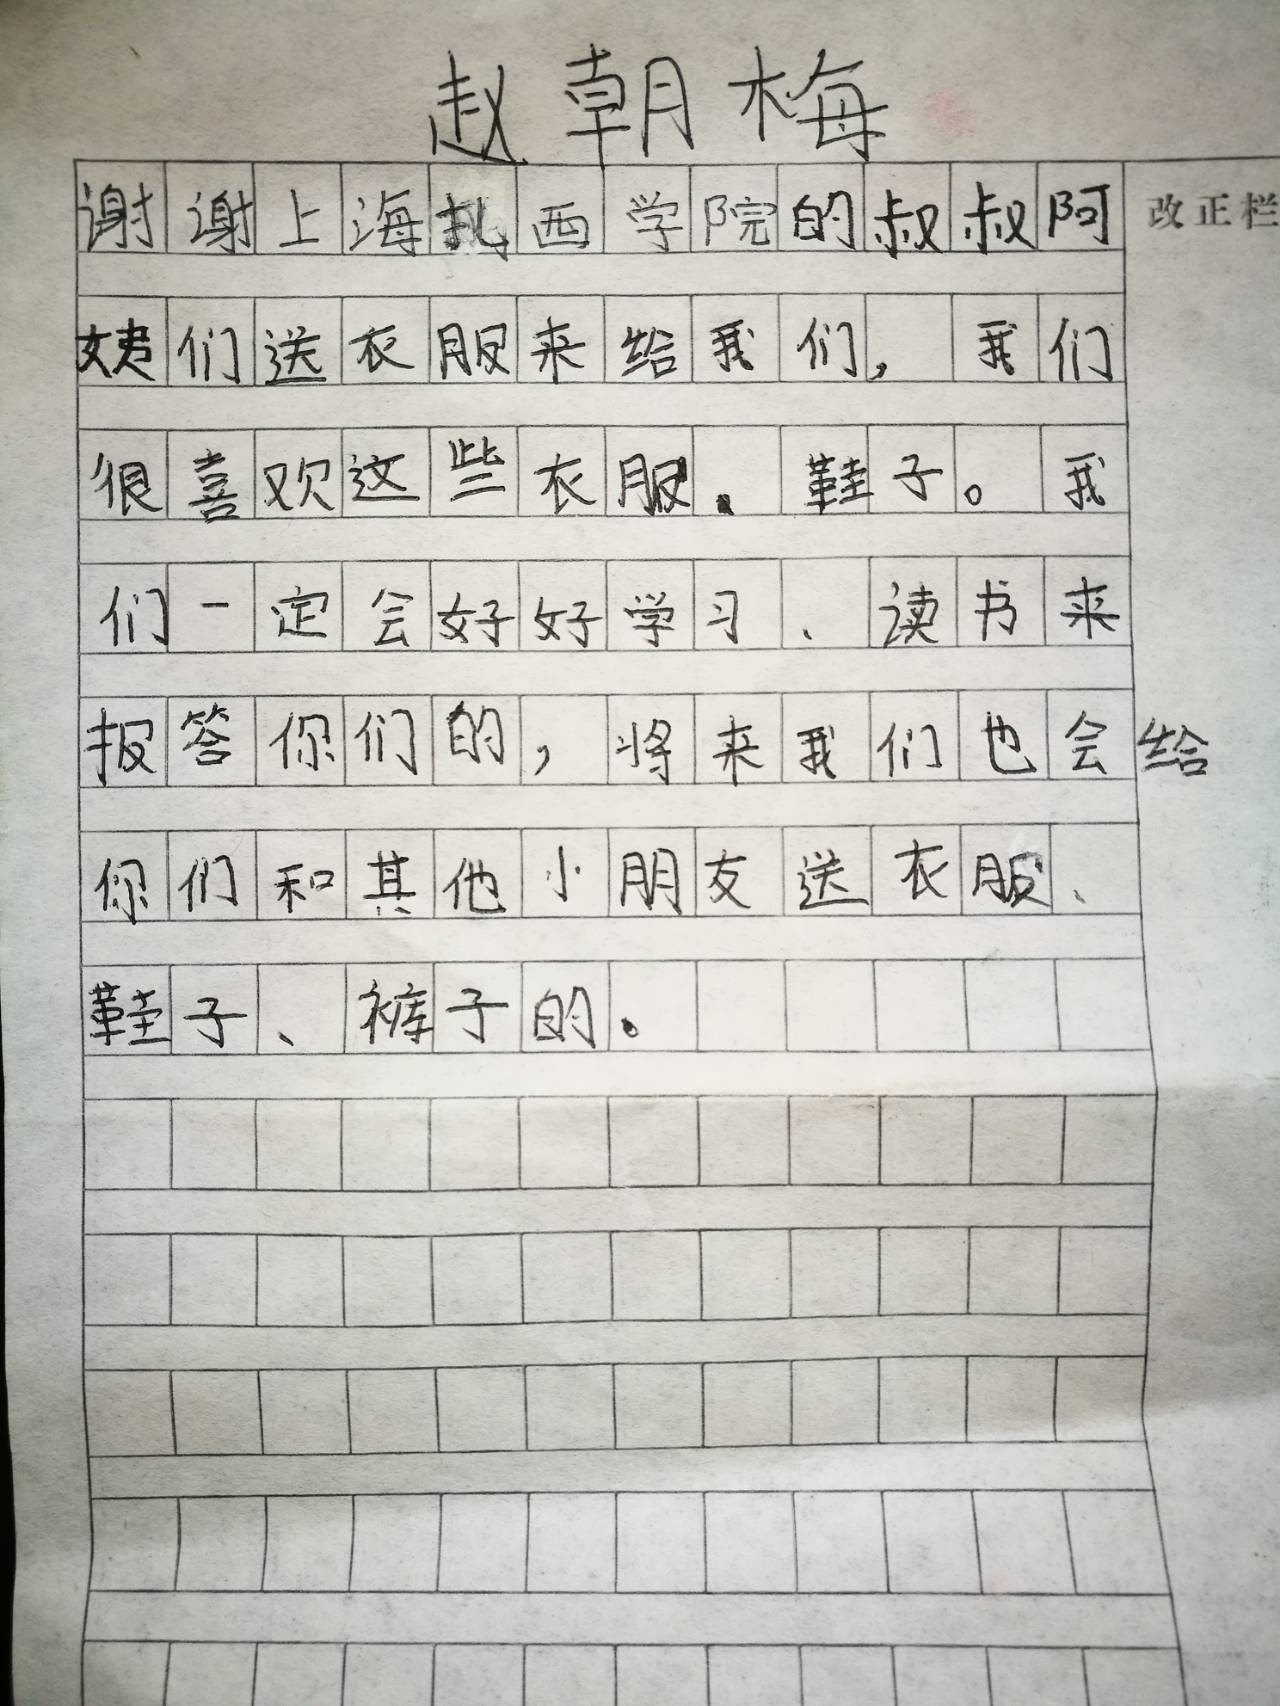 赵朝梅
谢谢上海扎西学院的叔叔阿 改正栏
姨们送衣服来给我们，我们
很喜欢这些衣服.鞋子。我
们一定会好好学习、读书来
报答你们的，将来我们也会给
你们和其他小朋友送衣服、
鞋子、裤子的。